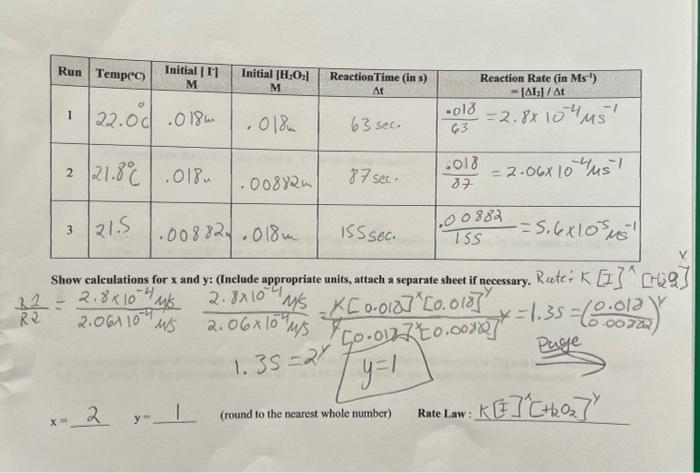 Run Temp(°C) Initial [I⁻] M Initial [H₂O₂] M Reaction Time (in s) Δt Reaction Rate (in Ms⁻¹) = |ΔI₂| / Δt
1 22.0°C .018m .018m 63 sec. .018/63 = 2.8x10⁻⁴Ms⁻¹
2 21.8°C .018m .00882m 87 sec. .018/87 = 2.06x10⁻⁴Ms⁻¹
3 21.5 .00882m .018m 155 sec. .00882/155 = 5.6x10⁻⁵Ms⁻¹
Show calculations for x and y: (Include appropriate units, attach a separate sheet if necessary. Rate: K[I]ˣ[H₂O₂]ʸ
R1/R2 = 2.8x10⁻⁴M/s / 2.06x10⁻⁴M/s 2.8x10⁻⁴M/s / 2.06x10⁻⁴M/s = K[0.018]ˣ[0.018]ʸ / K[0.018]ˣ[0.00882]ʸ = 1.35 = (0.018/0.00882)ʸ
1.35 = 2ʸ y=1
x = 2 y = 1 (round to the nearest whole number) Rate Law : K[I]ˣ[H₂O₂]ʸ